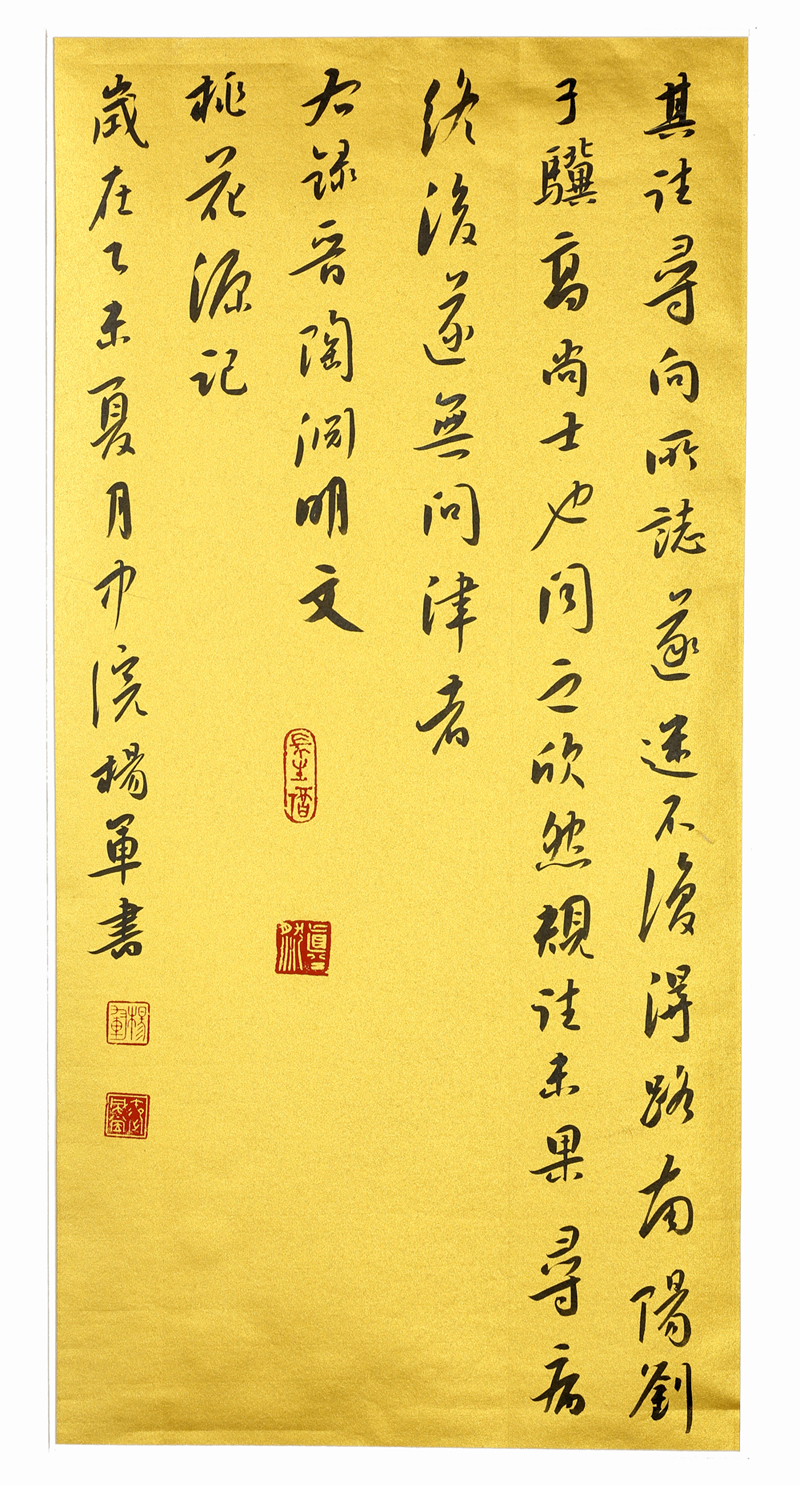 其往尋向所誌遂迷不復得路南陽劉
于驥高尚士也聞之欣然規往未果尋病
終後遂無問津者
右錄晉陶淵明文
桃花源記
歲在乙未夏月巾浣楊軍書
楊軍